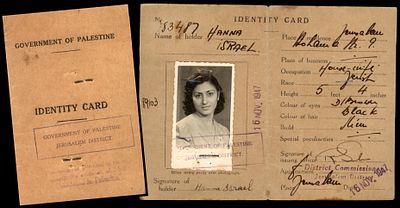 GOVERNMENT OF PALESTINE
IDENTITY CARD
GOVERNMENT OF PALESTINE
JERUSALEM DISTRICT
IDENTITY CARD
No 83487
Name of holder HANNA
ISRAEL
GOVERNMENT OF PALESTINE
JERUSALEM DISTRICT
16 NOV. 1947
Signature of
holder Hanna Israel
Place of residence Jerusalem
Place of business
Occupation Housewife
Race Jewish
Height 5 feet 4 inches
Colour of eyes D/Brown
Colour of hair Black
Build Slim
Special peculiarities
Signature of
issuing officer
Appointment District Commissioner
Jerusalem District
Place Jerusalem
16 NOV. 1947